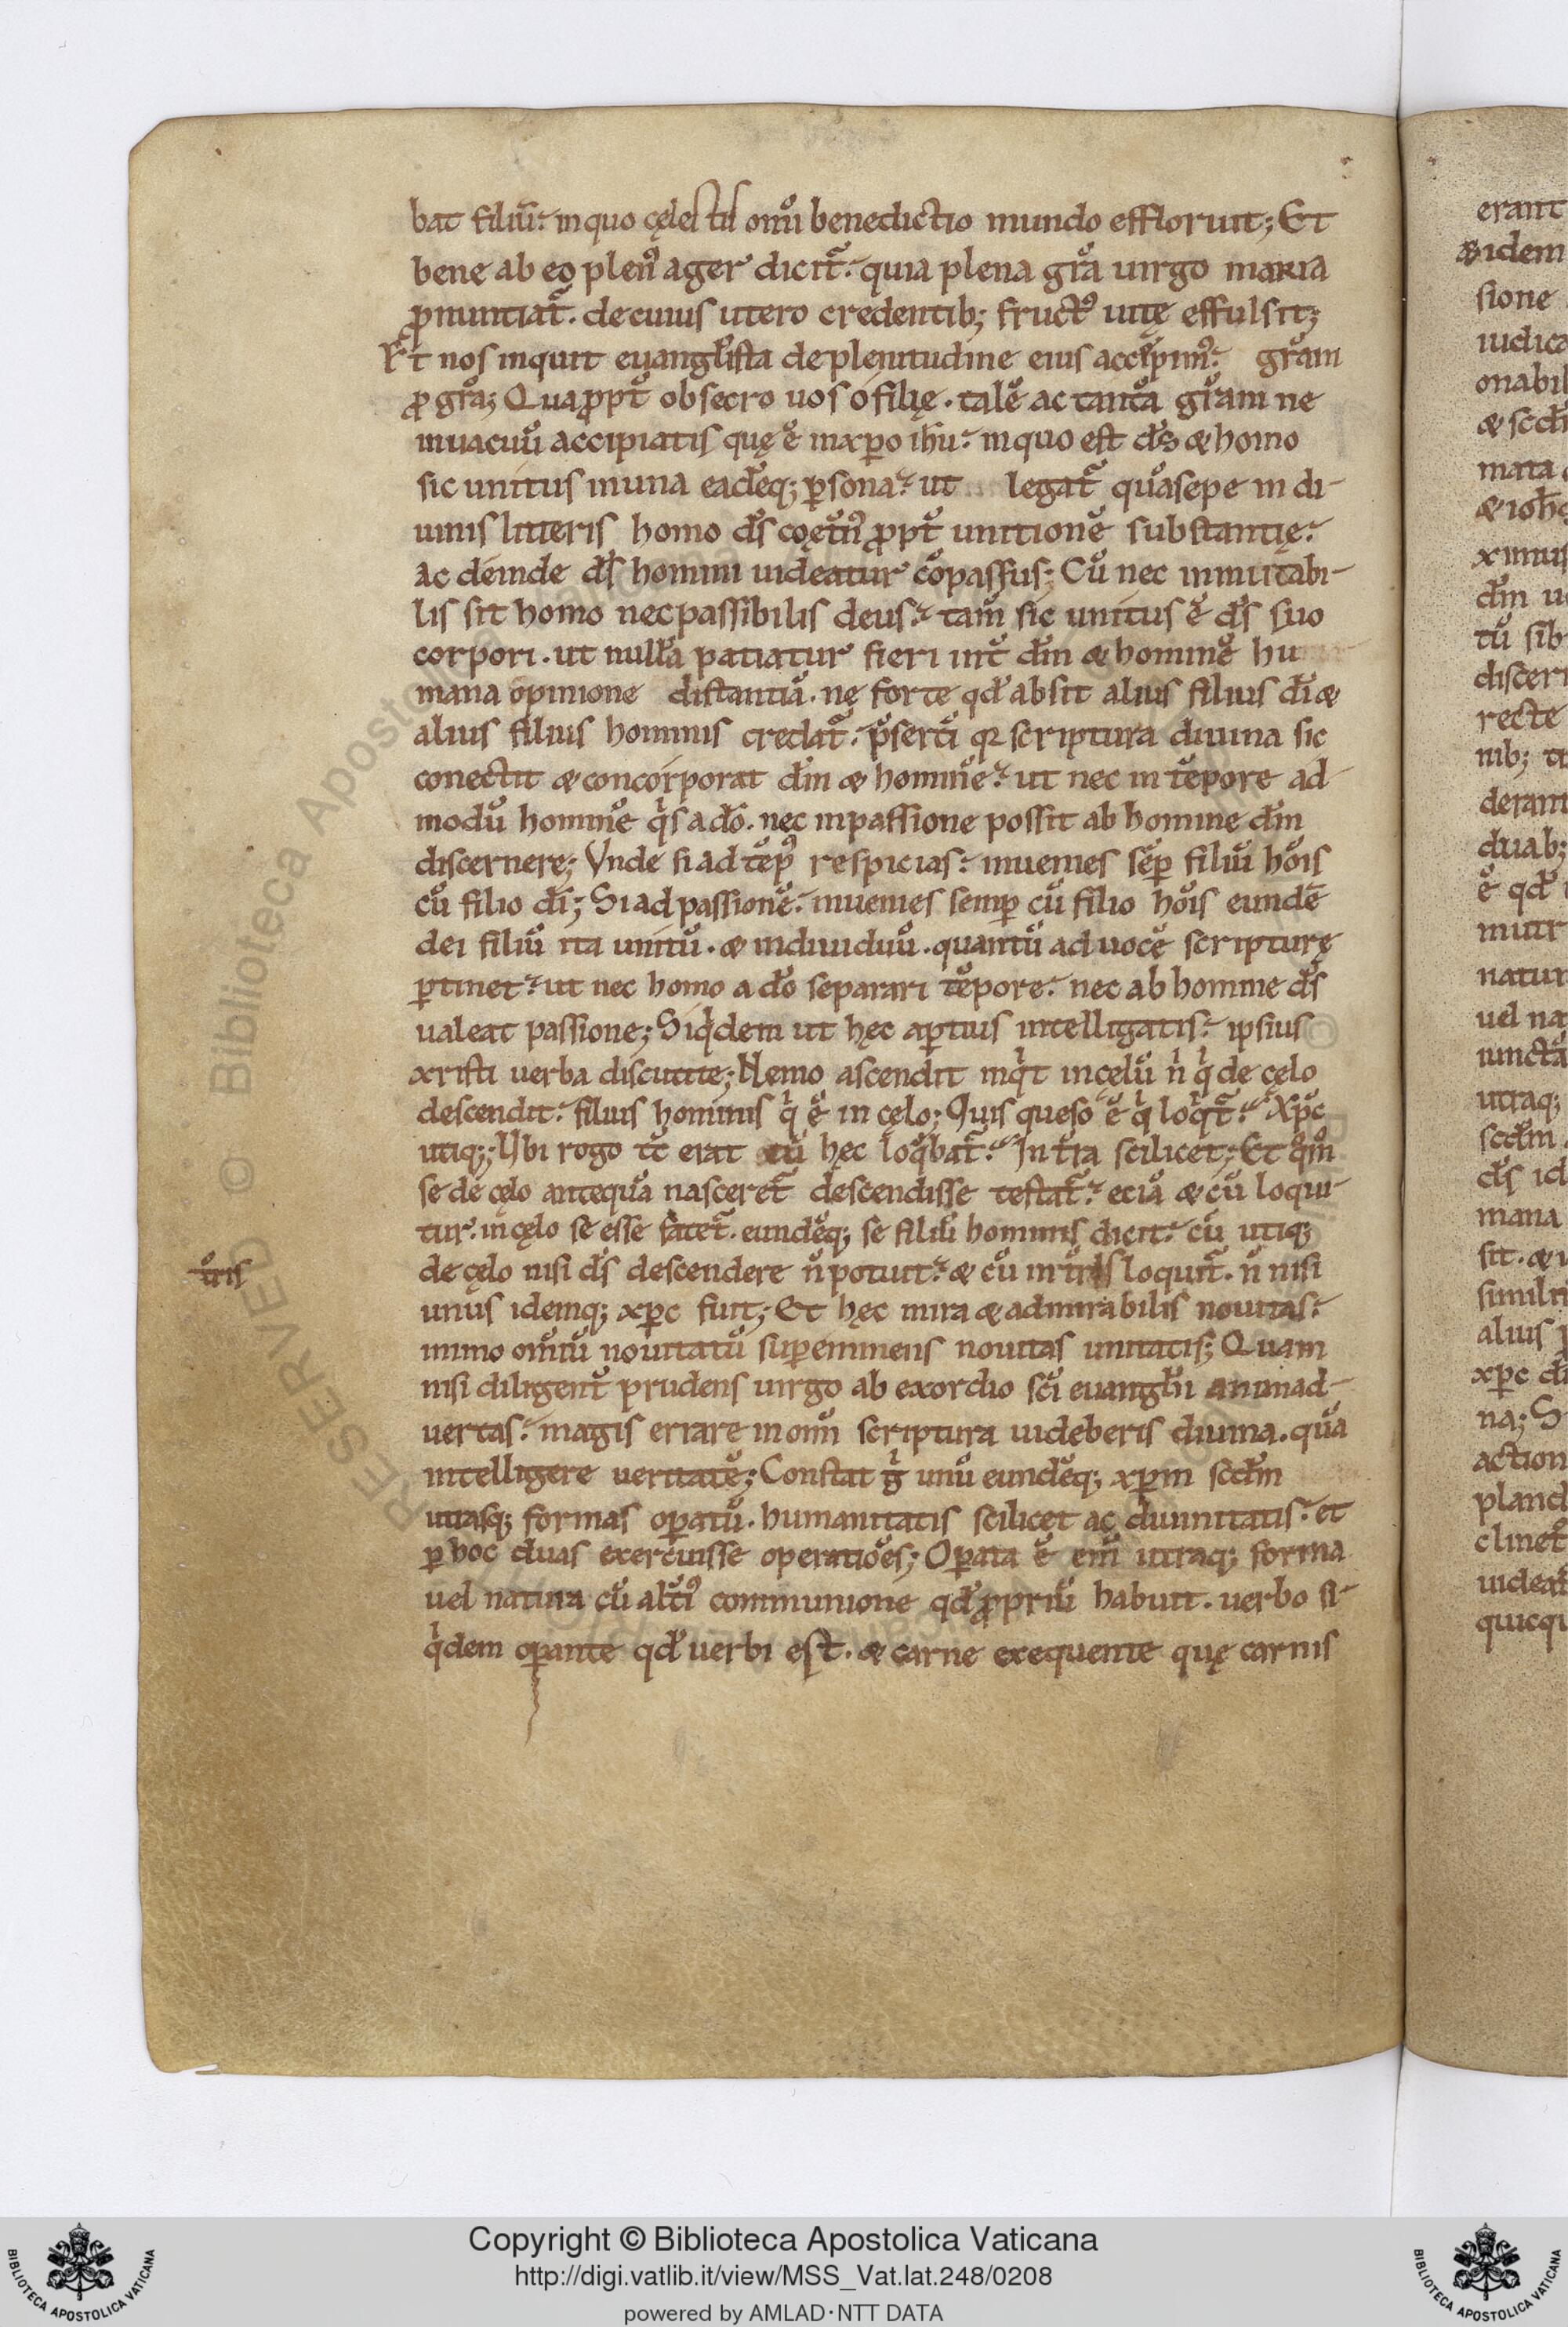 bat filiū. in quo cęlestis om̄i benedictio mundo effloruit; Et
bene ab eo plenꝰ ager dicit᷑. quia plena gr̄a uirgo maria
ꝓnuntiat᷑. de cuius utero credentib; fructꝰ uitę effulsit;
Et nos inquit euangl̄ista de plenitudine eius accepimꝰ. gr̄am
ꝓ gr̄a; Quaꝓpt̄ obsecro uos o filię. talē ac tantā gr̄am ne
in uacuū accipiatis quę ē in xp̄o ih̄u. in quo est d̄s & homo
sic unitus in una eadēq; ꝑsona. ut legat᷑ quā sepe in di-
uinis litteris homo d̄s coęt̄nꝰ ꝓpt̄ unitionē substantię.
ac deinde d̄s homini uideatur cōpassus; Cū nec inmutabi-
lis sit homo nec passibilis deus. tam̄ sic unitus ē d̄s suo
corpori. ut nullā patiatur fieri int̄ d̄m & hominē hu
mana opinione distantiā. ne forte qd̄ absit alius filius d̄i &
alius filius hominis credat᷑. p̄serti quia scriptura diuina sic
conectit & concorporat d̄m & hominē. ut nec in tēpore ad
modū hominē qi̍s a d̄o. nec in passione possit ab homine d̄m
discernere; Vnde si ad tēpꝰ respicias. inuenies sēꝑ filiū hōis
cū filio d̄i; Si ad passionē. inuenies semꝑ cū filio hōis eundē
dei filiū ita unitū. & indiuiduū. quantū ad uocē scripturę
ꝑtinet. ut nec homo a d̄o separari tēpore. nec ab homine d̄s
ualeat passione; Siqi̍dem ut hęc aꝑtius intelligatis. ipsius
xristi uerba discutite; Nemo ascendit inqi̍t in cęlū n̍ qi̍ de cęlo
descendit. filius hominis qi̍ ē in cęlo; Quis queso ē qi̍ loqi̍t᷑. Xp̄c
utiq; Ubi rogo t̄c erat cū hęc loq̄bat᷑. In t̄ra scilicet; Et qm̄
se de cęlo antequā nasceret᷑ descendisse testat᷑. eciā & cū loqui-
tur. in cęlo se esse fatet᷑. eundēq; se filiū hominis dicit. cū utiq;
t̄ris
de cęlo nisi d̄s descendere n̄ potuit. & cū in t̄ris loquit᷑. n̄ nisi
unus idemq; xp̄c fuit; Et hęc mira & admirabilis nouitas.
immo om̄iū nouitatū suꝑeminens nouitas unitatis; Quam
nisi diligent̄ prudens uirgo ab exordio sc̄i euangl̄ii animad-
uertas. magis errare in om̄i scriptura uideberis diuina. quā
intelligere ueritatē; Constat g̍ unū eundēq; xp̄m scd̄m
utrasq; formas oꝑatū. humanitatis scilicet ac diuinitatis. et
ꝑ hoc duas exercuisse operatiōes; Oꝑata ē eni̅ utraq; forma
uel natura cū alt̄iꝰ communione qd̄ ꝓpriū habuit. uerbo si-
qi̍dem oꝑante qd̄ uerbi est. & carne exequente quę carnis
erant
& idem
sione
iudica
onabil
& scd̄
mata
& ioh̄
ximus
d̄m u
tū sib
discer
recte
nib; ti
derant
duab;
ē qd̄
in utr
natur
uel na
iunctā
utraq;
scd̄m
d̄s id
mana
sit. & u
simili
alius
xp̄c d̄i
na; S
action
pland
clinet
uideat
quicqu
Copyright © Biblioteca Apostolica Vaticana
http://digi.vatlib.it/view/MSS_Vat.lat.248/0208
powered by AMLAD·NTT DATA
BIBLIOTECA APOSTOLICA VATICANA
BIBLIOTECA APOSTOLICA VATICANA